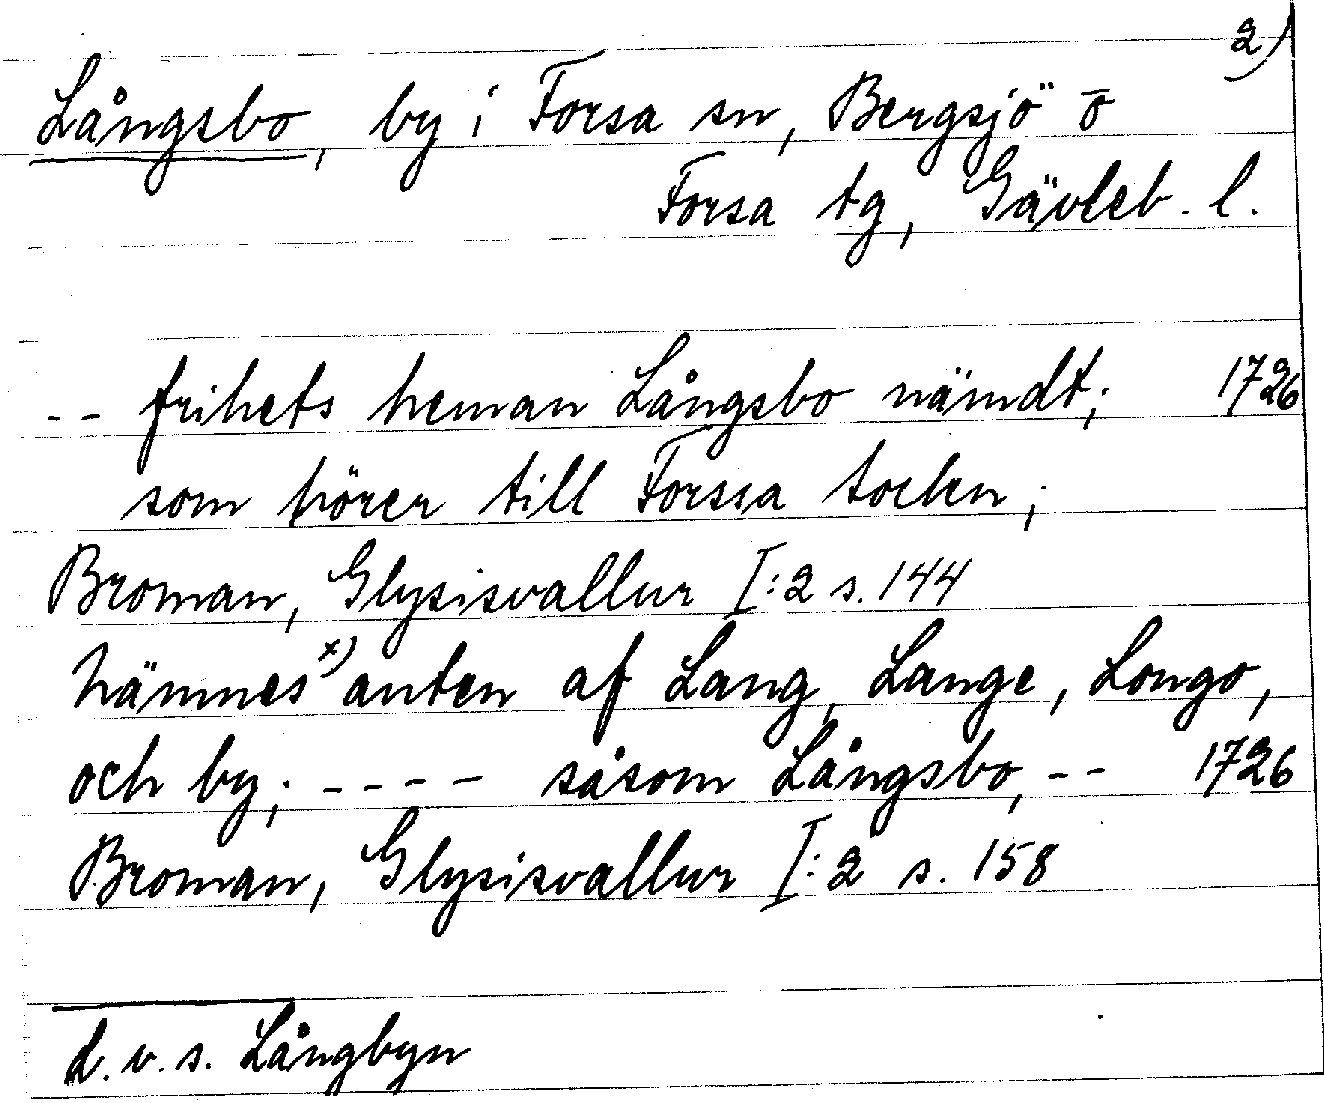 2)
Långsbo, by i Forsa sn, Bergsjö o
Forsa tg, Gävleb. l.
-- frihets heman Långsbo nämdt; 1726
som hörer till Forssa socken;
Broman, Glysisvallur I:2 s. 144
hämnes x) anten af Lang, Lange, Longo,
och by; ---- såsom Långsbo, -- 1726
Broman, Glysisvallur I:2 s. 158
d.v.s. Långbyn